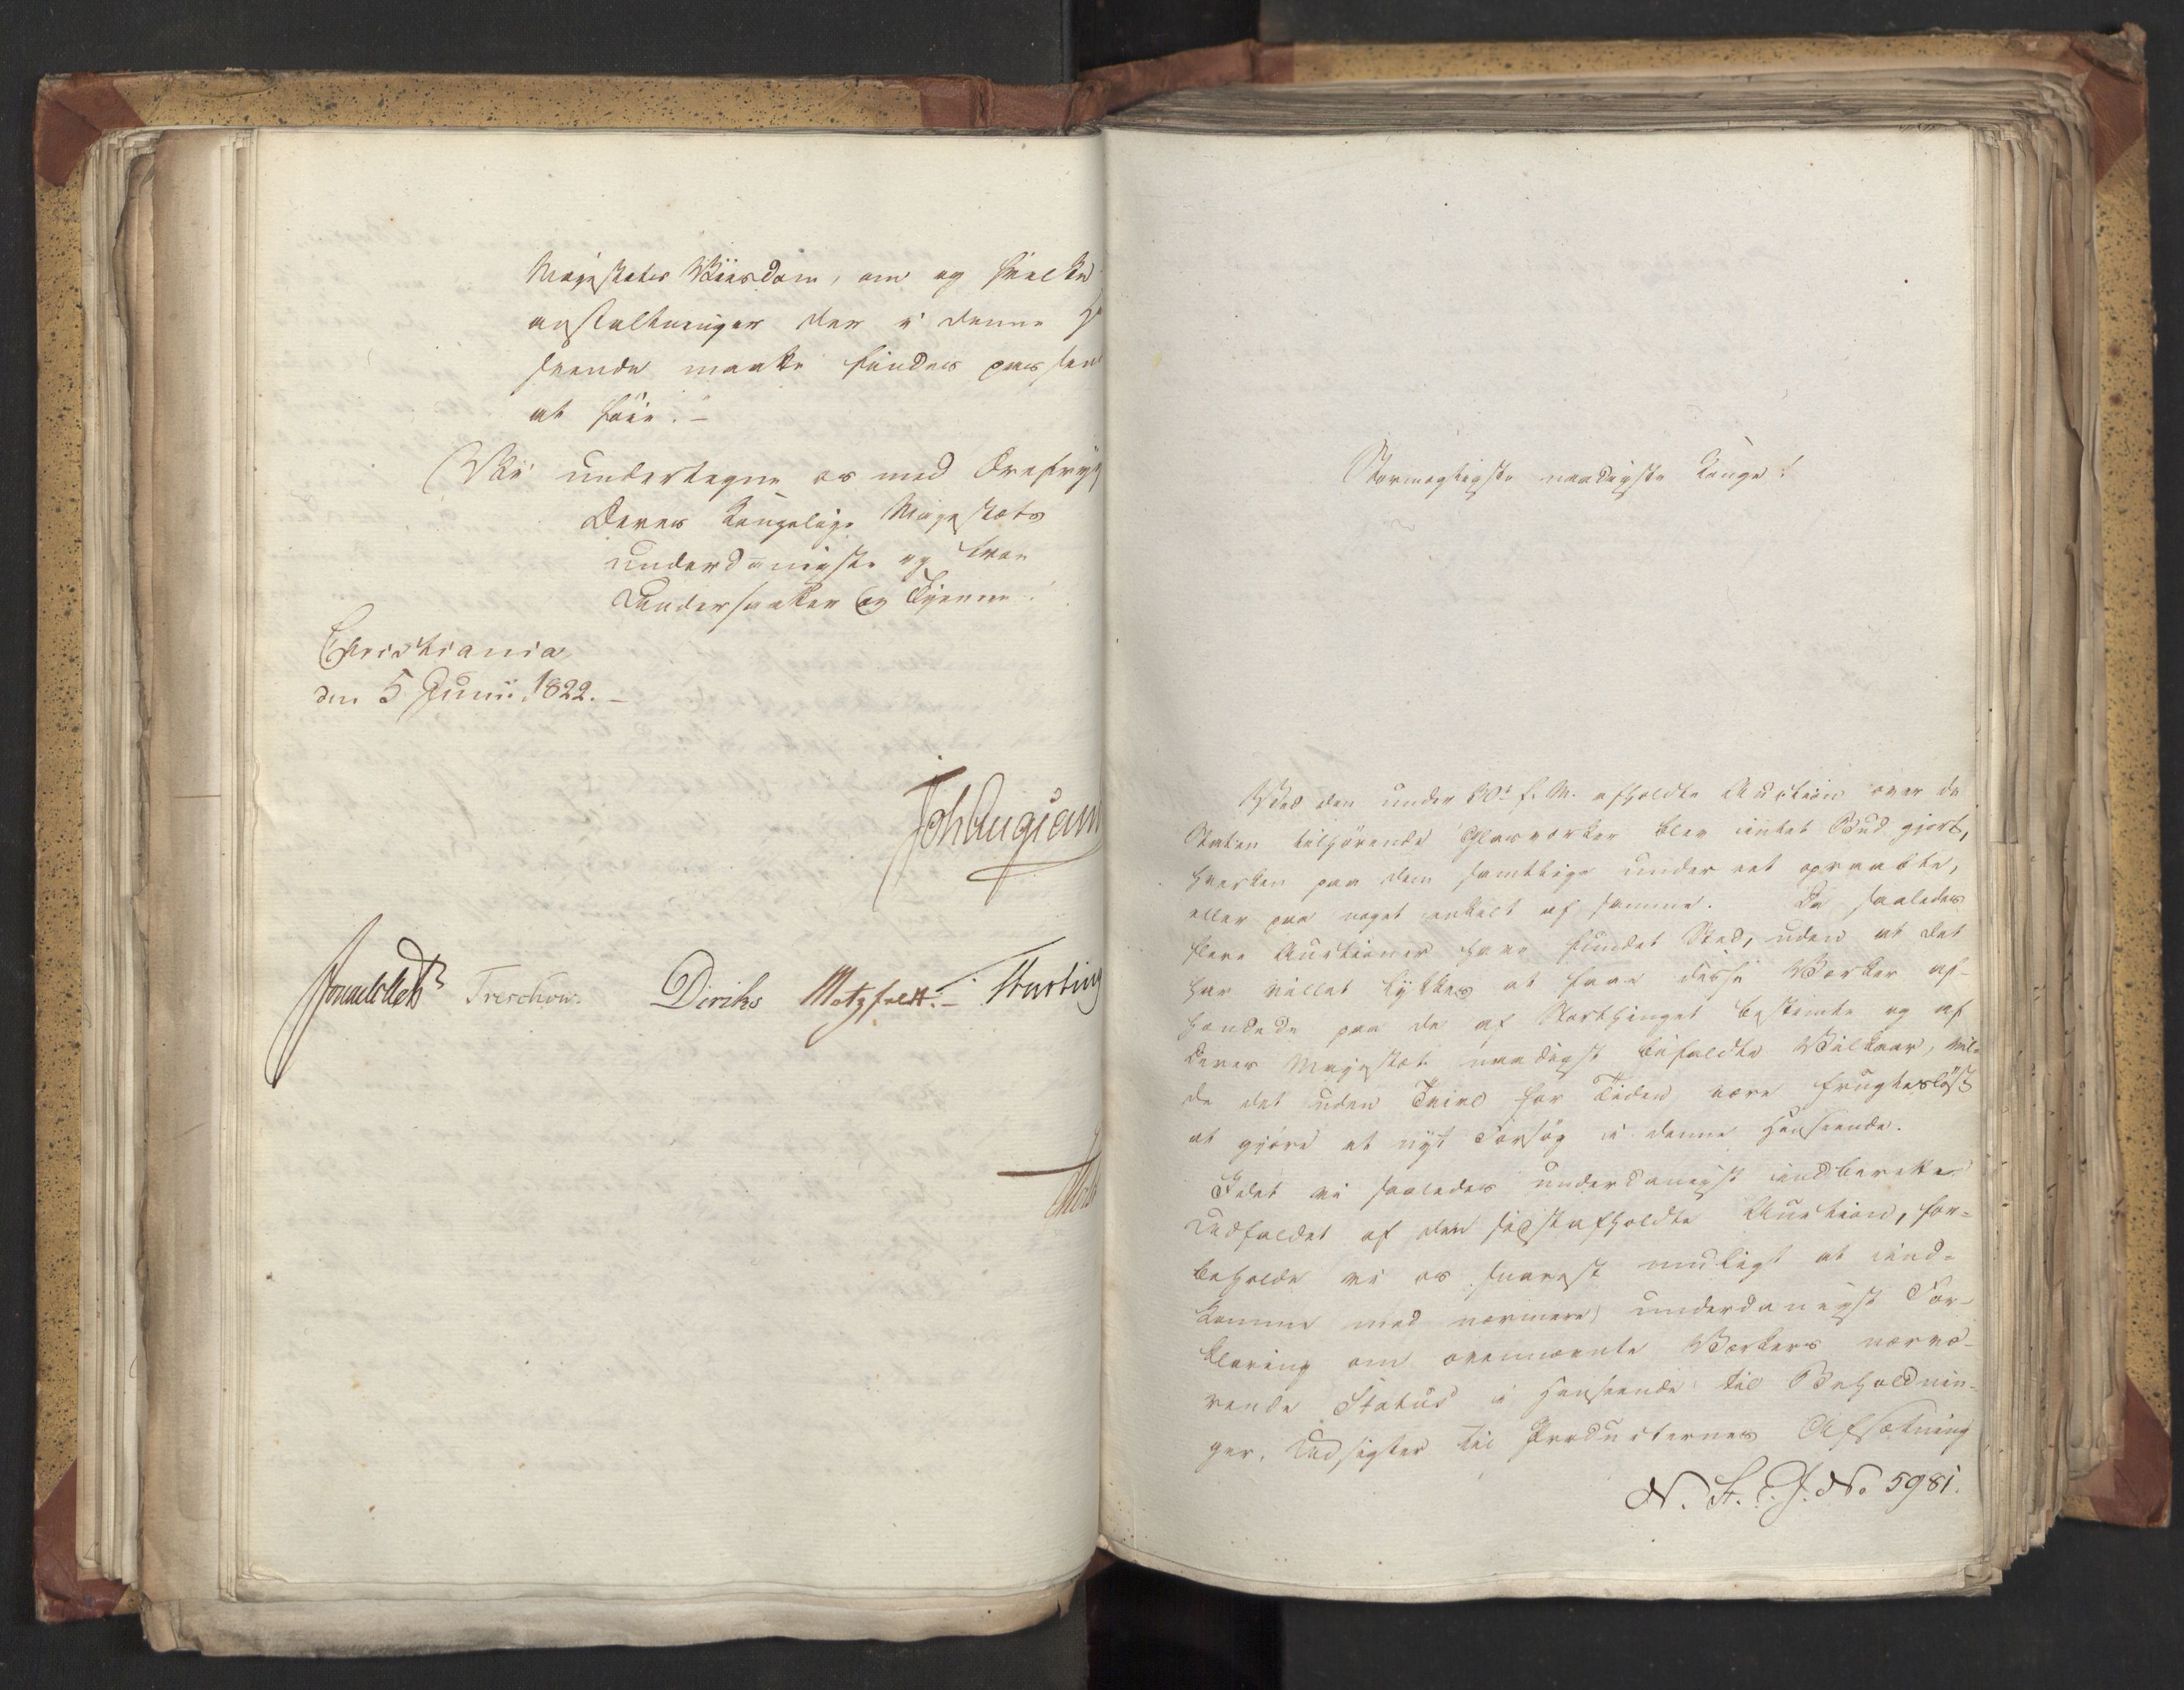 Majestæts Viisdom, om og hvilke
anstaltninger der i denne
seende maatte findes passen
at föie. –
Vi undertegne os med Ærefrygt
Deres Kongelige Majestæts
underdanigste og troe
Undersaatter og Tjenere.
Christiania,
den 5 Junii 1822. –
Joh Aug
Sommerhielm Treschow Diriks Motzfeldt. – 
Stormægtigste naadigste Konge!
Ved den under f. M. afholdte Auction over de
Staten tilhörende Glasværker blev intet Bud gjort,
hverken paa dem samtlige under eet opraabte,
eller paa noget enkelt af samme. Da saaledes
flere Auctioner have fundet Sted, uden at det
har villet lykkes at faae disse Værker af-
hændede paa de af Storthinget bestemte og af
Deres Majestæt naadigst befalede Vilkaar, vil-
de det uden Tvivl for Tiden være frugteslöst
at gjöre et nyt Forsög i denne Henseende.
Idet vi saaledes underdanigst indberette
Udfaldet af den sidstafholdte Auction, for-
beholde vi os snarest muligt at ind-
komme med nærmere underdanigst For-
klaring om ovennævnte Værkers nærvæ-
rende Status i Henseende til Beholdnin-
ger, Udsigter til Producternes Afsætning
N. St. J. No 5981.